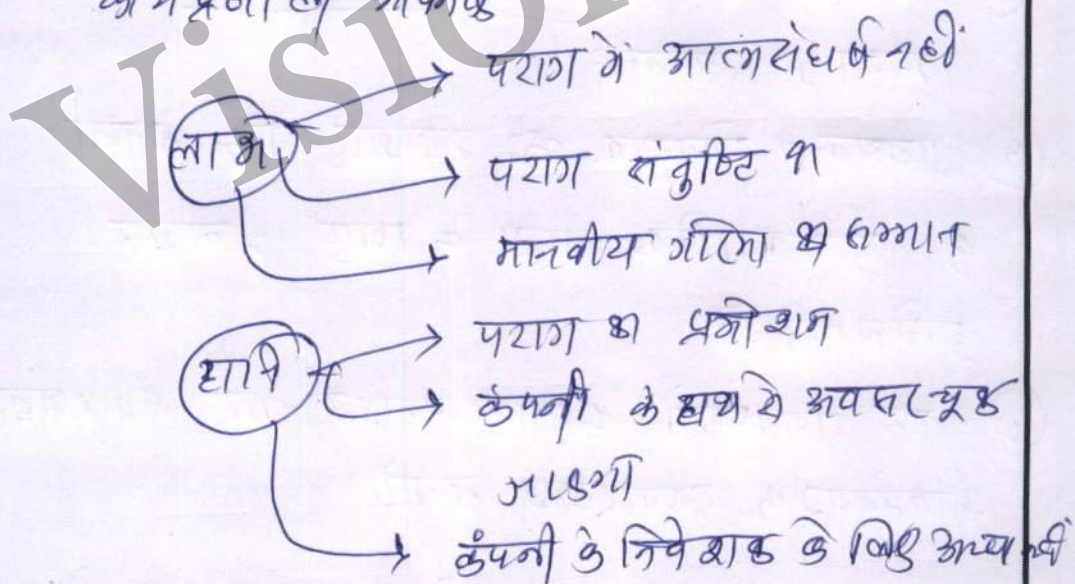 Vision
पराग में आत्मसंघर्ष नहीं
लाभ
पराग संतुष्टि का
मानवीय गरिमा का सम्मान
पराग का प्रमोशन
हानि
कंपनी के हाथ से अवसर चूक
जाएगा
कंपनी के निवेशक के लिए अच्छा नहीं